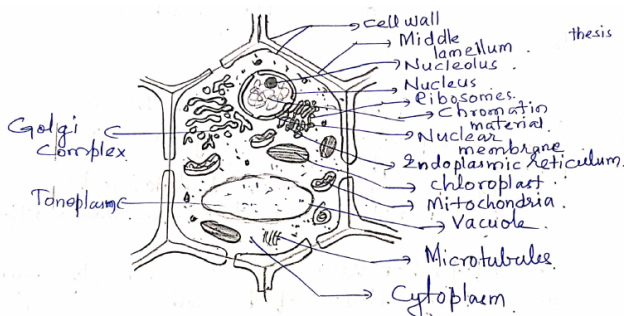 cell wall
Middle
lamellum.
thesis
Nucleolus.
Nucleus
Ribosomes.
Chromatin
material.
Nuclear
membrane
Endoplasmic reticulum.
chloroplast.
Mitochondria.
Vacuole
Microtubules
Cytoplasm
Golgi
Complex
Tonoplasm